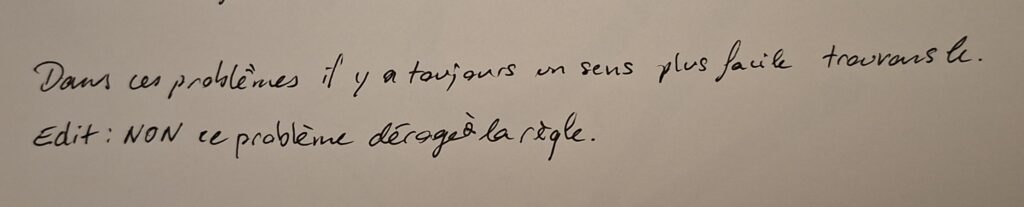 Dans ces problèmes il y a toujours un sens plus facile trouvons le.
Edit : NON ce problème déroge à la règle.